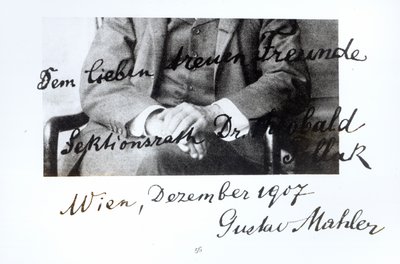 Dem lieben treuen Freunde
Sektionsrath Dr. Theobald
Pollak
Wien, Dezember 1907
Gustav Mahler